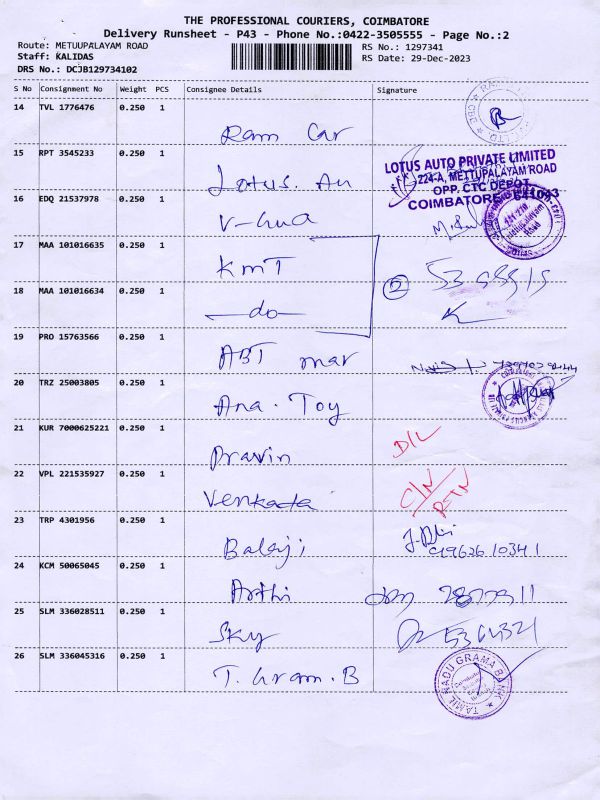 THE PROFESSIONAL COURIERS, COIMBATORE
Delivery Runsheet - P43 - Phone No.:0422-3505555 - Page No.:2
Route: METUUPALAYAM ROAD
RS No.: 1297341
Staff: KALIDAS
RS Date: 29-Dec-2023
DRS No.: DCJB129734102
S No Consignment No Weight PCS Consignee Details Signature
14 TVL 1776476 0.250 1
Ram Car
15 RPT 3545233 0.250 1
LOTUS AUTO PRIVATE LIMITED
224-A, METTUPALAYAM ROAD
OPP. CTC DEPOT
COIMBATORE - 641043
Lotus. Au
16 EDQ 21537978 0.250 1
17 MAA 101016635 0.250 1
KMT
18 MAA 101016634 0.250 1
2
—do—
19 PRO 15763566 0.250 1
ABT mar
20 TRZ 25003805 0.250 1
Ana Toy
21 KUR 7000625221 0.250 1
D/L
Pravin
22 VPL 221535927 0.250 1
C/N
RTN
Venkada
23 TRP 4301956 0.250 1
Balaji
24 KCM 50065045 0.250 1
Arthi
25 SLM 336028511 0.250 1
Sky
26 SLM 336045316 0.250 1
T. Gram. B
TAMIL NADU GRAMA BANK